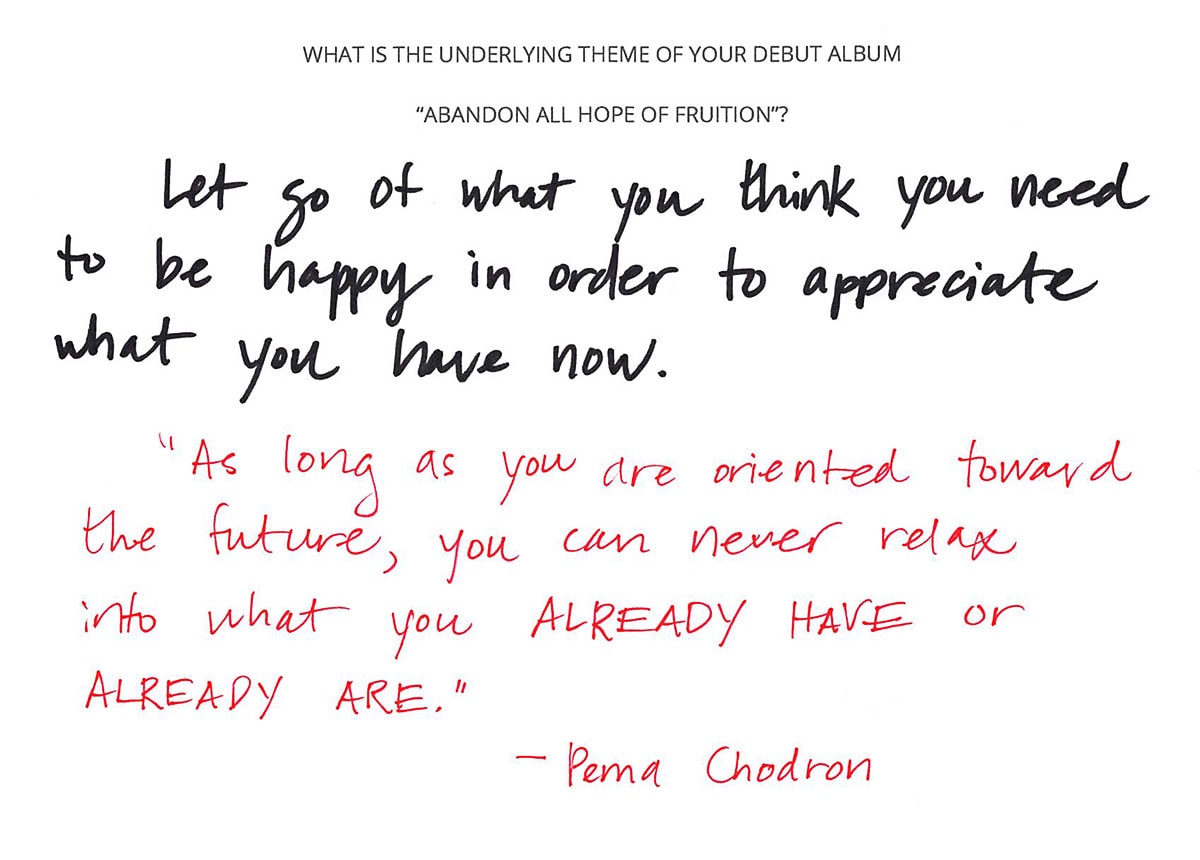 WHAT IS THE UNDERLYING THEME OF YOUR DEBUT ALBUM
“ABANDON ALL HOPE OF FRUITION”?
Let go of what you think you need
to be happy in order to appreciate
what you have now.
"As long as you are oriented toward
the future, you can never relax
into what you ALREADY HAVE or
ALREADY ARE."
- Pema Chodron